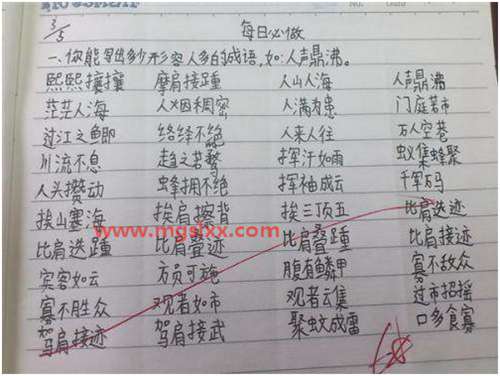 3/5
每日必做
一、你能写出多少形容人多的成语,如:人声鼎沸。
熙熙攘攘 摩肩接踵 人山人海 人声鼎沸
茫茫人海 人烟稠密 人满为患 门庭若市
过江之鲫 络绎不绝 人来人往 万人空巷
川流不息 趋之若鹜 挥汗如雨 蚁集蜂聚
人头攒动 蜂拥不绝 挥袖成云 千军万马
挨山塞海 挨肩擦背 挨三顶五 比肩迭迹
www.mgslxx.com
比肩迭踵 比肩叠迹 比肩叠踵 比肩接迹
宾客如云 方员可施 腹有鳞甲 寡不敌众
寡不胜众 观者如市 观者云集 过市招摇
驾肩接迹 驾肩接武 聚蚊成雷 口多食寡